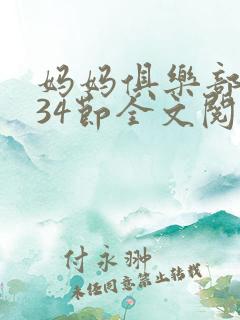 妈妈俱乐部
34节全文阅
付永翀
未经同意禁止转载